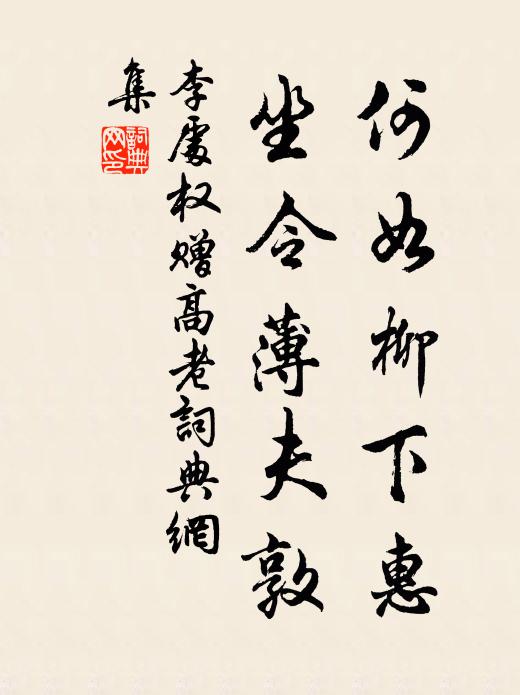 何如柳下惠
坐令薄夫敦
李處权赠高老詞典網
集
詞典网印